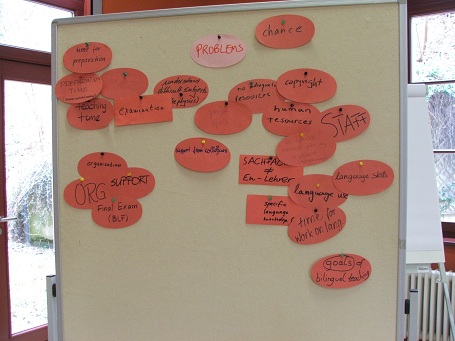 PROBLEMS
chance
time for
preparation
TIME
teaching
time
examination
(understand
difficult subjects
no bilingual
resources
copyright
human
resources
STAFF
support from colleagues
organisation
ORG
SUPPORT
Final Exam
(BLF)
SACHFACH
≠
En-Lehrer
language skills
language use
specific
language
knowledge
time for
work on lang.
goals of
bilingual teaching